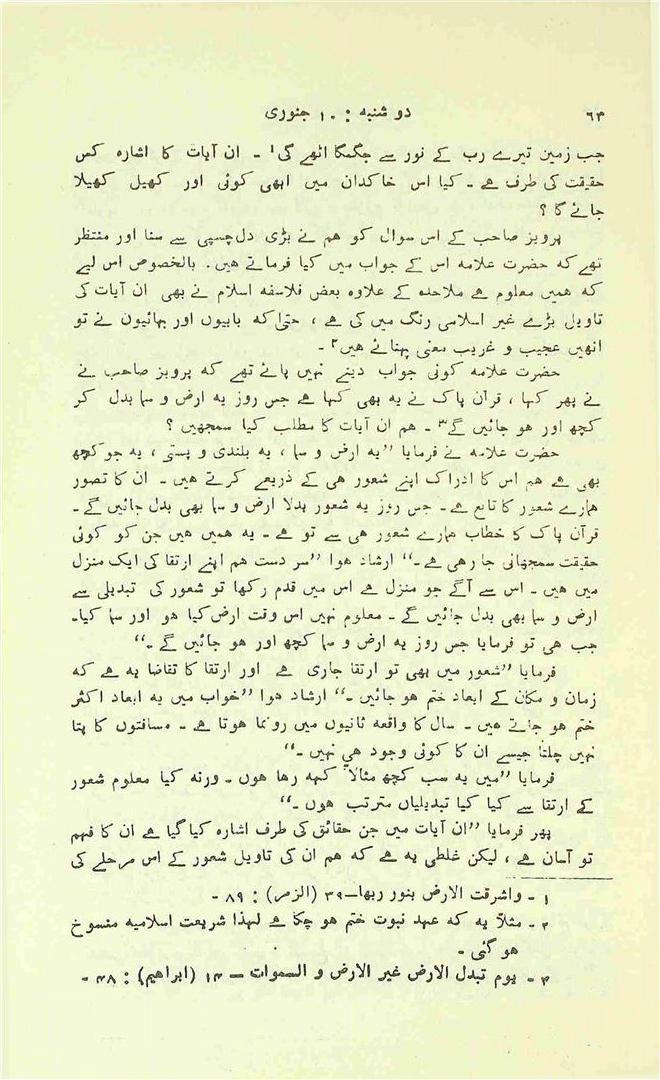 ٦٣ دو شنبه : ١٠ جنوری
جب زمین تیرے رب کے نور سے جگمگا اٹھے گی١ ۔ ان آیات کا اشارہ کس
حقیقت کی طرف ہے ۔ کیا اس خاکدان میں ابھی کوئی اور کھیل کھیلا
جائے گا ؟
پرویز صاحب کے اس سوال کو ہم نے بڑی دلچسپی سے سنا اور منتظر
تھے کہ حضرت علامہ اس کے جواب میں کیا فرماتے ہیں . بالخصوص اس لیے
کہ ہمیں معلوم ہے ملاحدہ کے علاوہ بعض فلاسفہ اسلام نے بھی ان آیات کی
تاویل بڑے غیر اسلامی رنگ میں کی ہے ، حتیٰ کہ بابیوں اور بہائیون نے تو
انھیں عجیب و غریب معنی پہنائے ہیں٢ ۔
حضرت علامہ کوئی جواب دینے نہیں پائے تھے کہ پرویز صاحب نے
نے پھر کہا ، قرآن پاک نے یہ بھی کہا ہے جس روز یہ ارض و سما بدل کر
کچھ اور ہو جائیں گے٣ ۔ ہم ان آیات کا مطلب کیا سمجھیں ؟
حضرت علامہ نے فرمایا ”یہ ارض و سما ، یہ بلندی و پستی ، یہ جو کچھ
بھی ہے ہم اس کا ادراک اپنے شعور ہی کے ذریعے کرتے ہیں ۔ ان کا تصور
ہمارے شعور کا تابع ہے ۔ جس روز یہ شعور بدلا ارض و سما بھی بدل جائیں گے ۔
قرآن پاک کا خطاب ہمارے شعور ہی سے تو ہے ۔ یہ ہمیں ہیں جن کو کوئی
حقیقت سمجھائی جا رہی ہے ۔“ ارشاد ہوا ”سر دست ہم اپنے ارتقا کی ایک منزل
میں ہیں ۔ اس سے آگے جو منزل ہے اس میں قدم رکھا تو شعور کی تبدیلی سے
ارض و سما بھی بدل جائیں گے ۔ معلوم نہیں اس وقت ارض کیا ہو اور سما کیا۔
جب ہی تو فرمایا جس روز یہ ارض و سما کچھ اور ہو جائیں گے ۔“
فرمایا ”شعور میں بھی تو ارتقا جاری ہے اور ارتقا کا تقاضا یہ ہے کہ
زمان و مکان کے ابعاد ختم ہو جائیں ۔“ ارشاد ہوا ”خواب میں یہ ابعاد اکثر
ختم ہو جاتے ہیں ۔ سال کا واقعہ ثانیوں میں رونما ہوتا ہے ۔ مسافتوں کا پتا
نہیں چلتا جیسے ان کا کوئی وجود ہی نہیں ۔“
فرمایا ”میں یہ سب کچھ مثالاً کہہ رہا ہوں ۔ ورنہ کیا معلوم شعور
کے ارتقا سے کیا کیا تبدیلیاں مترتب ہوں ۔“
پھر فرمایا ”ان آیات میں جن حقائق کی طرف اشارہ کیا گیا ہے ان کا فہم
تو آسان ہے ، لیکن غلطی یہ ہے کہ ہم ان کی تاویل شعور کے اس مرحلے کی
١ ۔ واشرقت الارض بنور ربها—٣٩ (الزمر) : ٨٩ ۔
٢ ۔ مثلاً یہ کہ عہد نبوت ختم ہو چکا ہے لہذا شریعت اسلامیہ منسوخ
ہو گئی ۔
٣ ۔ یوم تبدل الارض غیر الارض و السموات — ١٤ (ابراهیم) : ٤٨ ۔